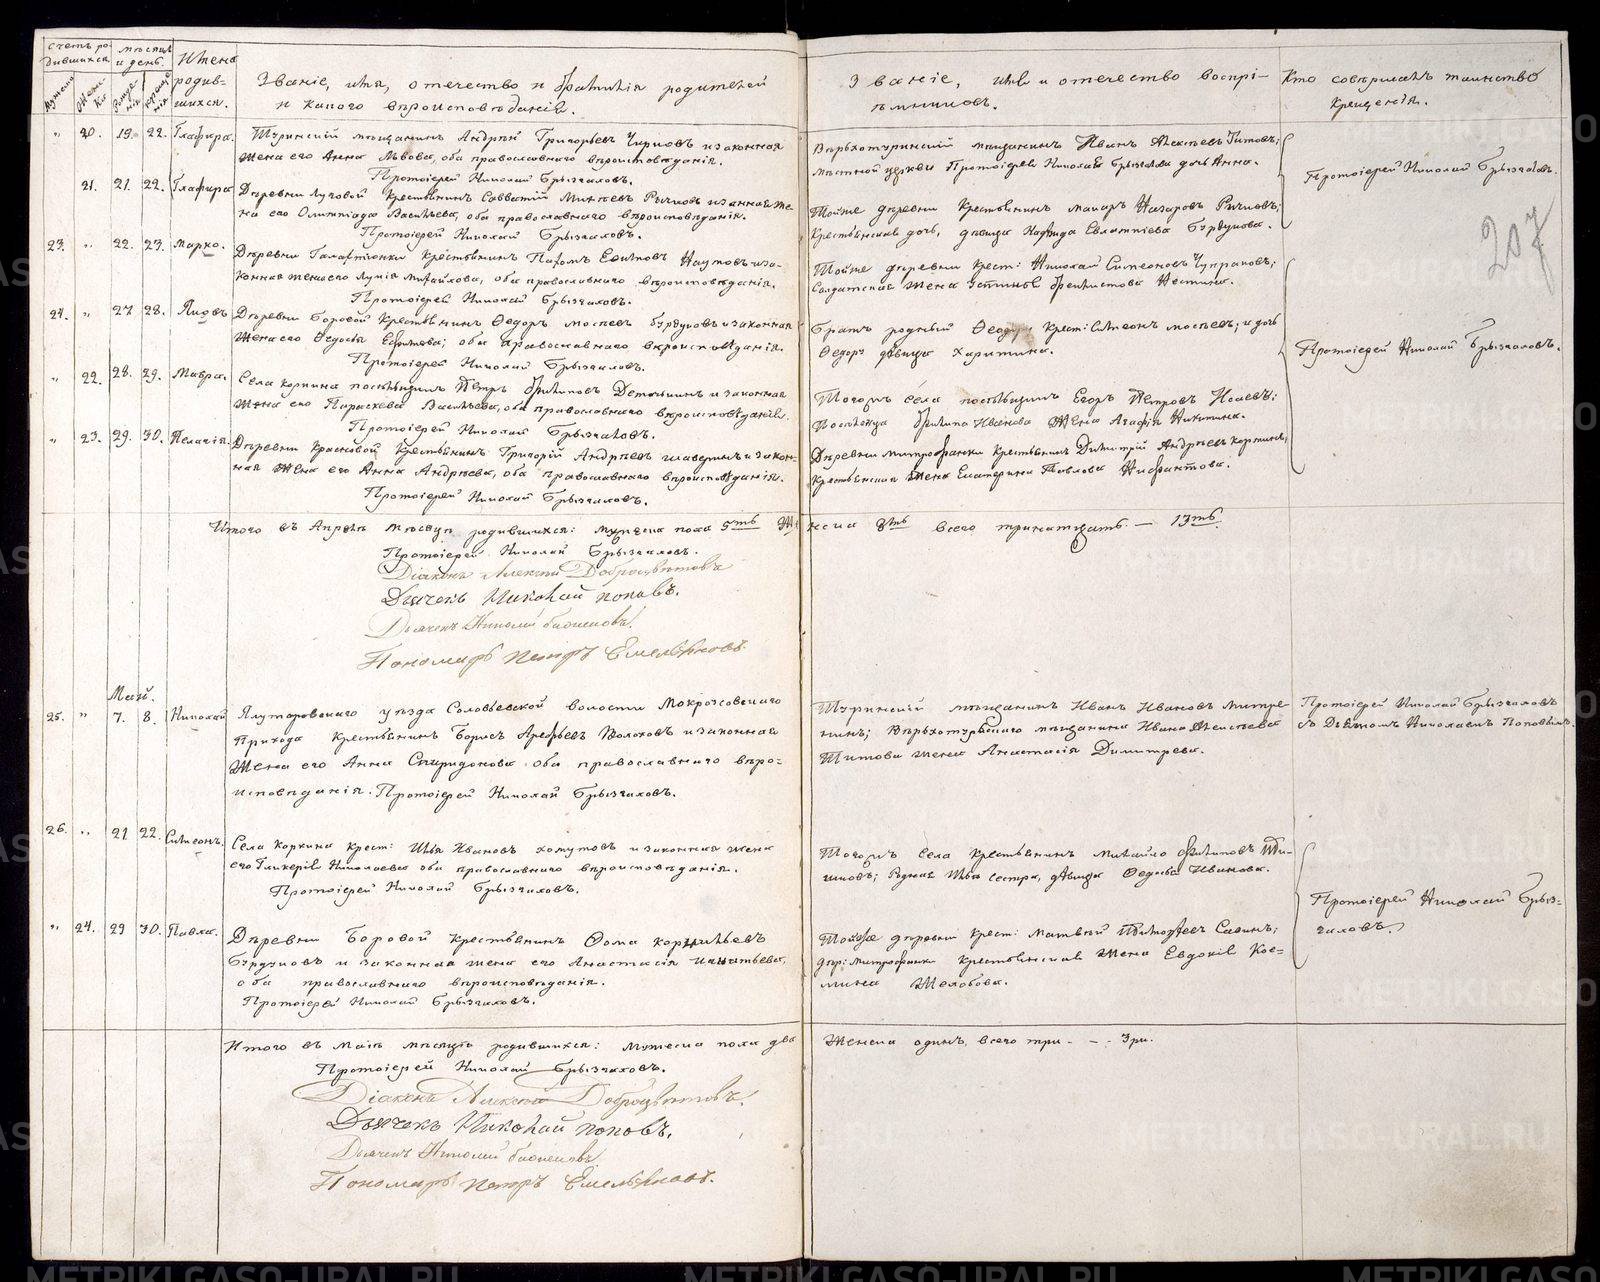 Счетъ ро-
дившихся.
Мѣсяцъ
и день.
Имена
родив-
шихся.
Мужска
Женска
Рожде-
нія
креще-
нія
Званіе, имя, отечество и фамилія родителей
и какого вѣроисповѣданія.
Званіе, имя и отечество воспрі-
емниковъ.
Кто совершалъ таинство
Крещенія.
" 20. 19. 22. Глафира.
Туринскій мѣщанинъ Андрей Григорьевъ и законная
жена его Анна Львова, оба православнаго вѣроисповѣданія.
Протоіерей Николай Брызгаловъ.
Верхотурскій мѣщанинъ Иванъ Алексѣевъ Титовъ;
мѣстной церкви Протоіерея Николая Брызгалова дочь Анна.
Протоіерей Николай Брызгаловъ.
21. 21. 22. Глафира
Деревни Луговой Крестьянинъ Савватій Рычковъ и законная же-
на его Олимпіада Васильева, оба православнаго вѣроисповѣданія.
Протоіерей Николай Брызгаловъ.
Тойже деревни Крестьянинъ Макаръ Назаровъ Рычковъ;
Крестьянская дочь, дѣвица Надежда Евлампіева Бурдукова.
207
23. " 22. 23. Марко.
Деревни Крестьянинъ Пахомъ Ефимовъ Наумовъ и за-
конная жена его Лукія Михайлова, оба православнаго вѣроисповѣданія.
Протоіерей Николай Брызгаловъ.
Тойже деревни крест: Николай Симеоновъ Чупраковъ;
Солдатская жена Устинья Нестина.
24. " 27 28. Яковъ
Деревни Боровой Крестьянинъ Ѳедоръ Бурдуковъ и законная
жена его Ѳедосья Ефимова; оба православнаго вѣроисповѣданія.
Протоіерей Николай Брызгаловъ.
Братъ родный крест: Симеонъ и дочь
дѣвица Харитина.
Протоіерей Николай Брызгаловъ.
" 22. 28. 29. Мавра.
Села Коркина Петръ Филиповъ и законная
жена его Параскева Васильева, оба православнаго вѣроисповѣданія.
Протоіерей Николай Брызгаловъ.
Тогожъ села Егоръ Петровъ Исаевъ;
Филипа Иванова жена Агафія Никитина.
" 23. 29. 30. Пелагія.
Деревни Красновой Крестьянинъ Григорій Андреевъ и закон-
ная жена его Анна Андреева, оба православнаго вѣроисповѣданія.
Протоіерей Николай Брызгаловъ.
Деревни Митрофанки Крестьянинъ Димитрій Андреевъ Коркинъ;
Крестьянская жена Екатерина Павлова Нифантова.
Итого въ Апрелѣ мѣсяцѣ родившихся: мужеска пола 5ть женска 8мь всего тринатцать — 13ть.
Протоіерей Николай Брызгаловъ.
Діаконъ Алексѣй Доброцвѣтовъ
Дьячекъ Николай Поповъ.
Дьячекъ Николай
Пономарь Петръ Емельяновъ
Май.
25. " 7. 8. Николай
Ялуторовскаго уѣзда Соловьевской волости Мокроусовскаго
Прихода Крестьянинъ Борисъ Арефьевъ и законная
жена его Анна Спиридонова оба православнаго вѣро-
исповѣданія. Протоіерей Николай Брызгаловъ.
Туринскій мѣщанинъ Иванъ Ивановъ
Верхотурскаго мѣщанина Ивана Алексѣева
Титова жена Анастасія Димитрева.
Протоіерей Николай Брызгаловъ
съ Дьячкомъ Николаемъ Поповымъ.
26. " 21 22. Симеонъ.
Села Коркина крест: Илья Ивановъ Хомутовъ и законная жена
его Гликерія Николаева оба православнаго вѣроисповѣданія.
Протоіерей Николай Брызгаловъ.
Тогожъ села Крестьянинъ Михайло Филиповъ
Родная Ильи сестра, дѣвица Ѳедосья Иванова.
Протоіерей Николай Брыз-
галовъ.
" 24. 29 30. Павла.
Деревни Боровой Крестьянинъ Ѳома Корнильевъ
Бурдуковъ и законная жена его Анастасія Игнатьева,
оба православнаго вѣроисповѣданія.
Протоіерей Николай Брызгаловъ.
Тойже деревни крест: Матвѣй Тимофеевъ Савинъ;
дер: Митрофанки Крестьянская жена Евдокія Кос-
мина Желобова.
Итого въ Маѣ мѣсяцѣ родившихся: мужеска пола два
Женска одинъ, всего три. — . 3ри.
Протоіерей Николай Брызгаловъ.
Діаконъ Алексѣй Доброцвѣтовъ.
Дьячекъ Николай Поповъ.
Дьячекъ Николай
Пономарь Петръ Емельяновъ.
METRIKI.GASO-URAL.RU